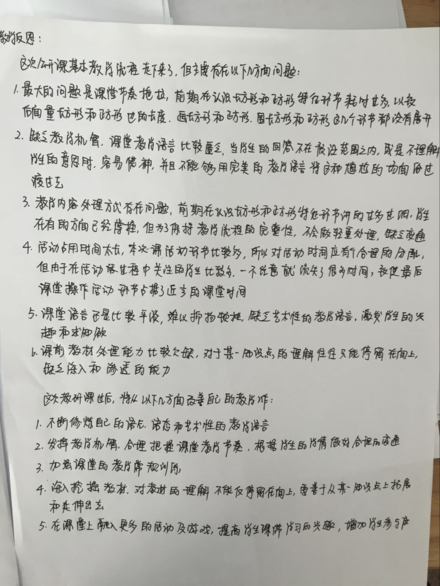 教学反思:
这次教研课基本教学流程走下来了,但主要存在以下几方面问题:
1.最大的问题是课堂节奏拖拉,前期在认识长方形和正方形特征环节耗时过多,以致
后面量长方形和正方形边的长度、画长方形和正方形、围长方形和正方形这几个环节都没有展开
2.缺乏教学机智、课堂教学语言比较匮乏,当学生的回答不在预设范围之内,或是不理解
学生的意思时,容易 并且不能够用完美的教学语言将这种尴尬的场面 过
渡过去
3.教学内容处理方式存在问题,前期在认识长方形和正方形特征环节 的过多 ,学生
在有的方面已经掌握,但为了保持教学流程的完整性,不会做轻重处理,缺乏变通
4.活动占用时间太长,本次课活动环节比较多,所以对活动时间应有个合理的分配,
但由于在活动 过程中关注的学生比较多,一不注意就流失了很多时间,致使最后
课堂操作活动环节占据了近 的课堂时间
5.课堂语言过于比较平淡,难以抑扬顿挫,缺乏艺术性的教学语言,激发学生的兴
趣和求知欲
6.课前教材处理能力比较欠缺,对于某一知识点的理解往往只能停留在面上,
缺乏深入和渗透的能力
这次教研课后,将从以下几方面改善自己的教学工作:
1.不断修炼自己的语言,培养和艺术性的教学语言
2.发挥教学机智,合理把握课堂教学节奏,根据学生的学情做好合理的变通
3.加强课堂的教学常规训练
4.深入挖掘教材,对教材的理解不能仅停留在面上,要善于从某一知识点上拓展
和延伸出去
5.在课堂上融入更多的活动及游戏,提高学生课堂学习的兴趣,增加学生参与度